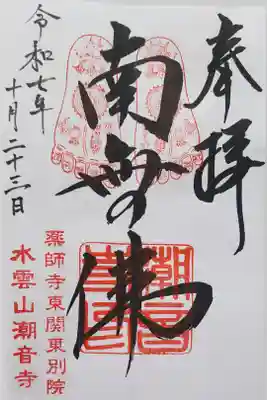 奉拝
南無の佛
潮音寺印
薬師寺東関東別院
水雲山潮音寺
令和七年
十月二十三日